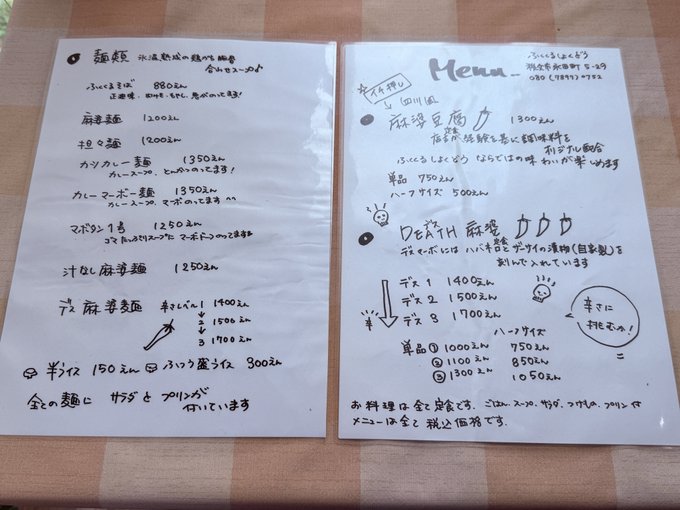 麺類 氷温熟成の鶏がら豚骨
合わせスープ♪
ふくくるそば 880えん
正油味、のりもやし、巻がのってます!
麻婆麺 1200えん
担々麺 1200えん
カツカレー麺 1350えん
カレースープ、とんかつのってます!
カレーマーボー麺 1350えん
カレースープ、マーボのってます^^
マボタン1号 1250えん
ゴマたっぷりスープにマーボドーンのってます
汁なし麻婆麺 1250えん
デス麻婆麺 辛さレベル1 1400えん
↓
2 1500えん
↓
3 1700えん
半ライス 150えん ふつう盛ライス 300えん
全ての麺に サラダとプリンが
付いています
Menu
ふくくるしょくどう
秩父市永田町5-29
080(7899)0752
イチ押し
↓ 四川風
麻婆豆腐 定食 1300えん
店主が経験を基に調味料を
オリジナル配合
ふくくるしょくどうならではの味わいが楽しめます
単品 750えん
ハーフサイズ 500えん
デス
DEATH麻婆 定食
デスマーボにはハバネロとザーサイの漬物(自家製)を
刻んで入れています
デス1 1400えん
デス2 1500えん
デス3 1700えん
辛
辛さに
挑む!!
ハーフサイズ
単品① 1000えん 750えん
② 1100えん 850えん
③ 1300えん 1050えん
お料理は全て定食です。ごはん、スープ、サラダ、つけもの、プリン付
メニューは全て税込価格です。